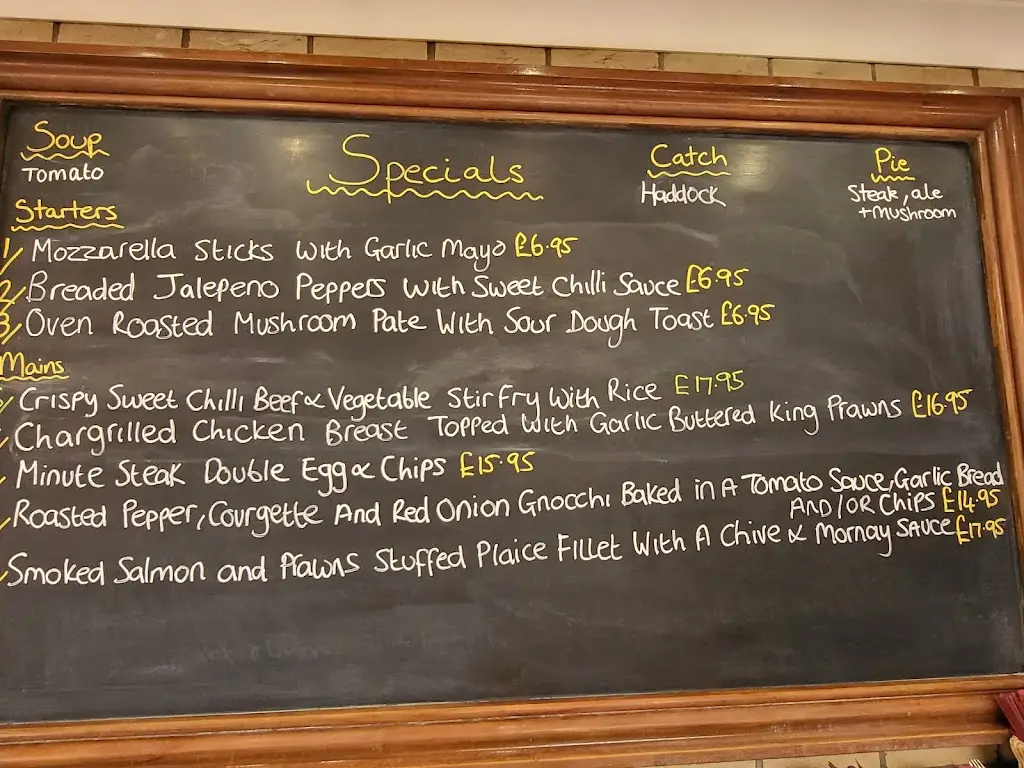 Soup
Tomato
Specials
Catch
Haddock
Pie
Steak, ale
+ Mushroom
Starters
1/ Mozzarella Sticks With Garlic Mayo £6.95
2/ Breaded Jalepeno Peppers With Sweet Chilli Sauce £6.95
3/ Oven Roasted Mushroom Pate With Sour Dough Toast £6.95
Mains
Crispy Sweet Chilli Beef & Vegetable Stir Fry With Rice £17.95
Chargrilled Chicken Breast Topped With Garlic Buttered King Prawns £16.95
Minute Steak Double Egg & Chips £15.95
Roasted Pepper, Courgette And Red Onion Gnocchi Baked in A Tomato Sauce, Garlic Bread
AND/OR Chips £14.95
Smoked Salmon and Prawns Stuffed Plaice Fillet With A Chive & Mornay Sauce £17.95